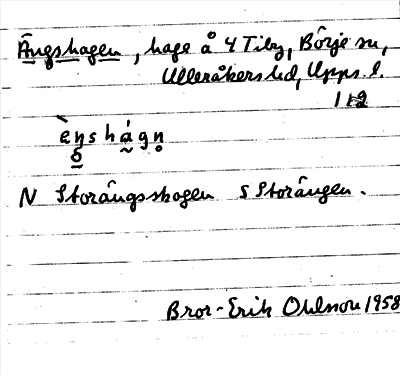 Ängshagen, hage å 4 Tiby, Börje sn,
Ulleråkers hd, Upps. l.
ènshágn
N Storängsskogen S Storängen.
Bror-Erik Ohlsson 1958